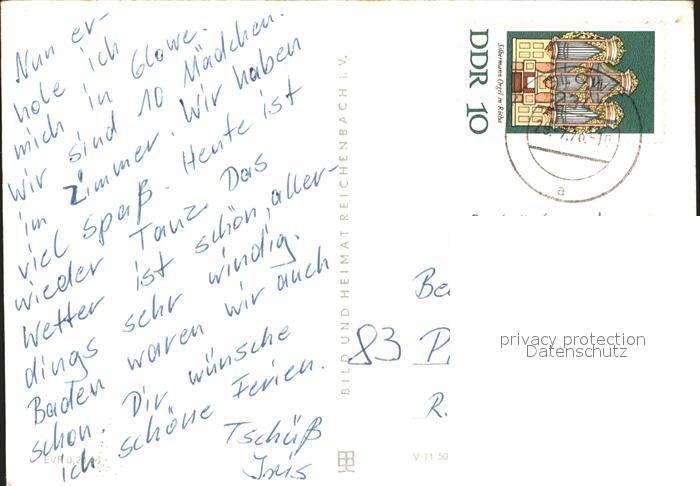 Nun er-
hole ich
mich in Glowe.
Wir sind 10 Mädchen
im Zimmer. Wir haben
viel Spaß. Heute ist
wieder Tanz. Das
Wetter ist schön, aller-
dings sehr windig.
Baden waren wir auch
schon. Dir wünsche
ich schöne Ferien.
Tschüß
Iris
BILD UND HEIMAT REICHENBACH i. V.
DDR 10
Silbermann-Orgel in Rötha
a
Be
83 P
R.
privacy protection
Datenschutz
V 11 50